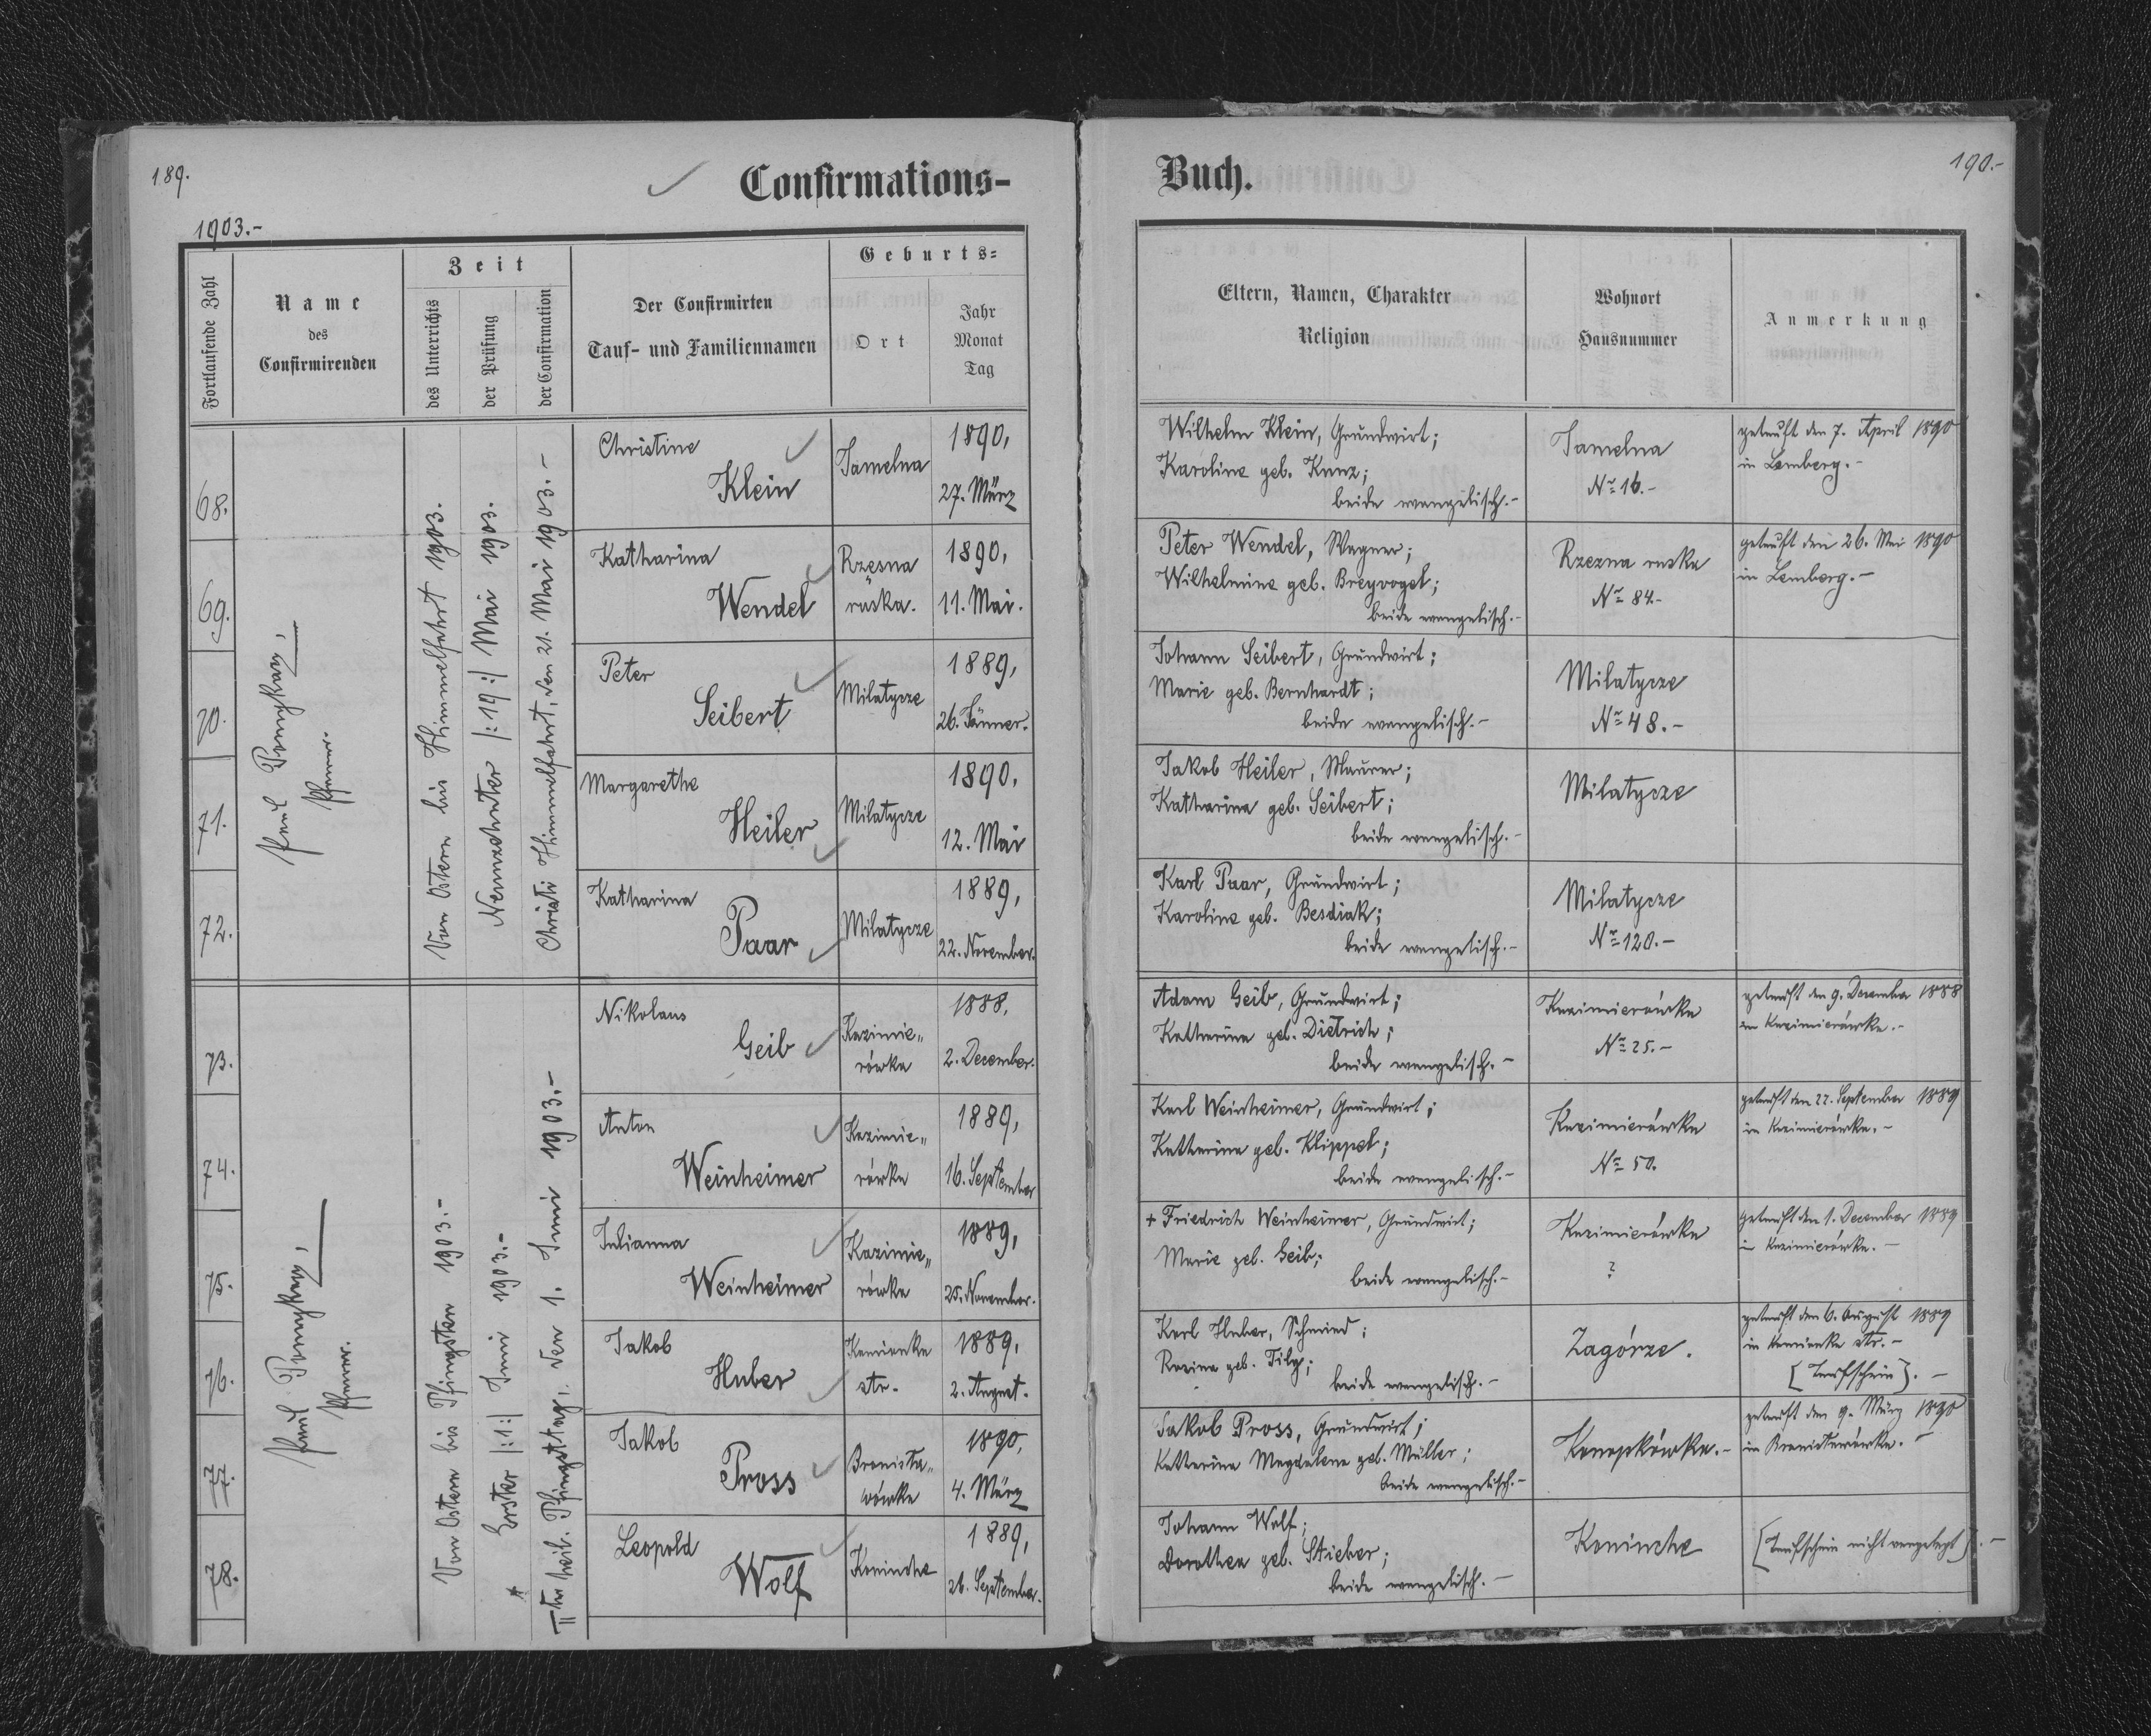 189.
Confirmations-
1903.-
Fortlaufende Zahl
Name
des
Confirmirenden
Zeit
des Unterrichts
der Prüfung
der Confirmation
Der Confirmirten
Tauf- und Familiennamen
Geburts-
Ort
Jahr
Monat
Tag
Paul
Pfarrer.
Von Ostern bis Himmelfahrt 1903.
Neunzehnter |:19:| Mai 1903.
Christi Himmelfahrt, den 21. Mai 1903.-
68.
Christine
Klein
Jamelna
1890,
27. März
69.
Katharina
Wendel
Rzęsna
ruska.
1890,
11. Mai.
70.
Peter
Seibert
Milatycze
1889,
26. Jänner.
71.
Margarethe
Heiler
Milatycze
1890.
12. Mai
72.
Katharina
Paar
Milatycze
1889,
22. November.
Paul
Pfarrer.
Von Ostern bis Pfingsten 1903.-
Erster |:1:| Juni 1903.-
IIter heil. Pfingsttag, den 1. Juni 1903.-
73.
Nikolaus
Geib
Kazimie„
rówka
1888.
2. December.
74.
Anton
Weinheimer
Kazimie„
rówka
1889,
16. September
75.
Julianna
Weinheimer
Kazimie„
rówka
1889,
25. November.
76.
Jakob
Huber
Kamionka
str.
1889,
2. August.
77.
Jakob
Pross
Bronisła„
wówka
1890,
4. März
78.
Leopold
Wolf
Konincha
1889,
26. September.
190.-
Buch.
Eltern, Namen, Charakter
Religion
Wohnort
Hausnummer
Anmerkung
Wilhelm Klein, Grundwirt;
Karoline geb. Kunz;
beide evangelisch.-
Jamelna
No 16.-
getauft den 7. April 1890
in Lemberg.-
Peter Wendel, Wagner;
Wilhelmine geb. Breyvogel;
beide evangelisch.-
Rzezna ruska
No 84.-
getauft den 26. Mai 1890
in Lemberg.-
Johann Seibert, Grundwirt;
Marie geb. Bernhardt;
beide evangelisch.-
Milatycze
No 48.-
Jakob Heiler, Maurer;
Katharina geb. Seibert;
beide evangelisch.-
Milatycze
Karl Paar, Grundwirt;
Karoline geb. Besdiak;
beide evangelisch.-
Milatycze
No 120.-
Adam Geib, Grundwirt;
Katharina geb. Dietrich;
beide evangelisch.-
Kazimierówka
No 25.-
getauft den 9. December 1888
in Kazimierówka.-
Karl Weinheimer, Grundwirt;
Katharina geb. Klippel;
beide evangelisch.-
Kazimierówka
No 50.
getauft den 22. September 1889
in Kazimierówka.-
+ Friedrich Weinheimer, Grundwirt;
Marie geb. Geib;
beide evangelisch.-
Kazimierówka
?
getauft den 1. December 1889
in Kazimierówka.-
Karl Huber, Schmied;
Rosina geb. Tily;
beide evangelisch.-
Zagórze.
getauft den 6. August 1889
in Kamionka str.-
[Taufschein].-
Jakob Pross, Grundwirt;
Katharina Magdalena geb. Müller;
beide evangelisch.-
Konopkówka.-
getauft den 9. März 1890
in Bronisławówka.-
Johann Wolf;
Dorothea geb. Stieber;
beide evangelisch.-
Konincha
[Taufschein nicht vorgelegt].-